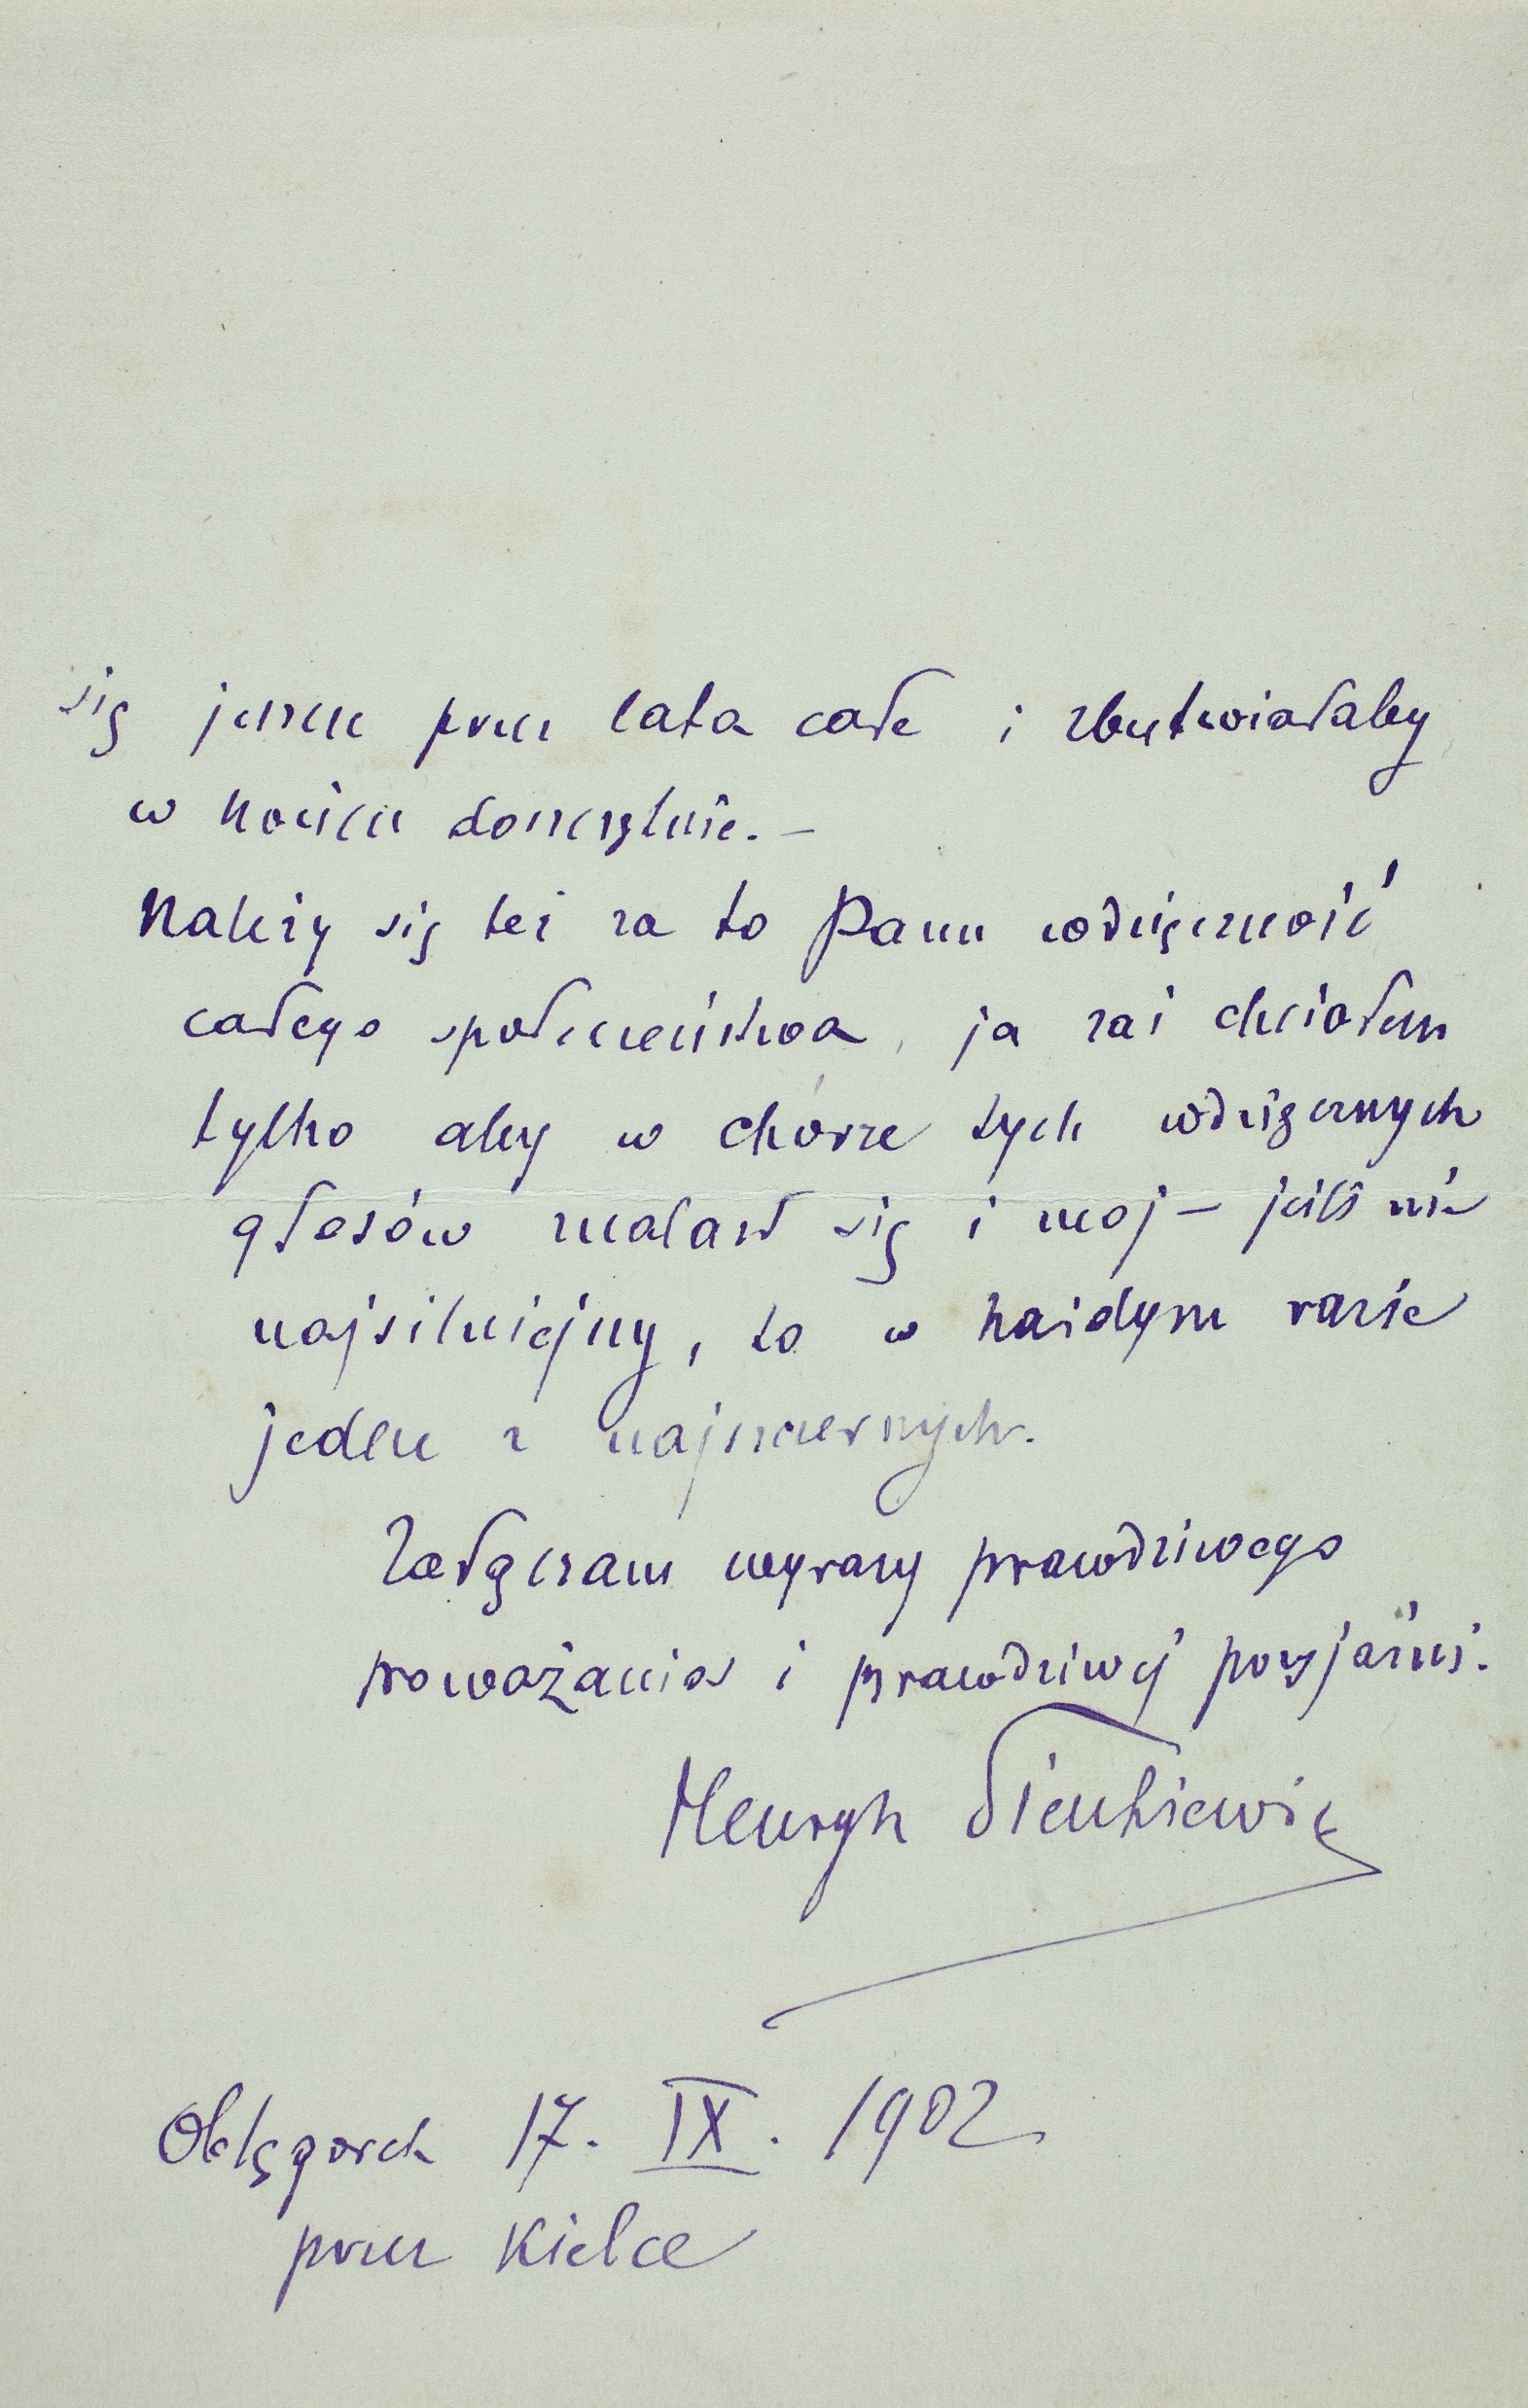 się jeszcze przez lata całe i zbutwiałaby
w końcu doszczętnie. —
Należy się też za to Panu wdzięczność
całego społeczeństwa, ja zaś chciałem
tylko aby w chórze tych wdzięcznych
głosów znalazł się i mój — jeśli nie
najsilniejszy, to w każdym razie
jeden z najszczerszych.
Załączam wyrazy prawdziwego
poważania i prawdziwej przyjaźni.
Henryk Sienkiewicz
Oblęgorek 17. IX. 1902
przez Kielce